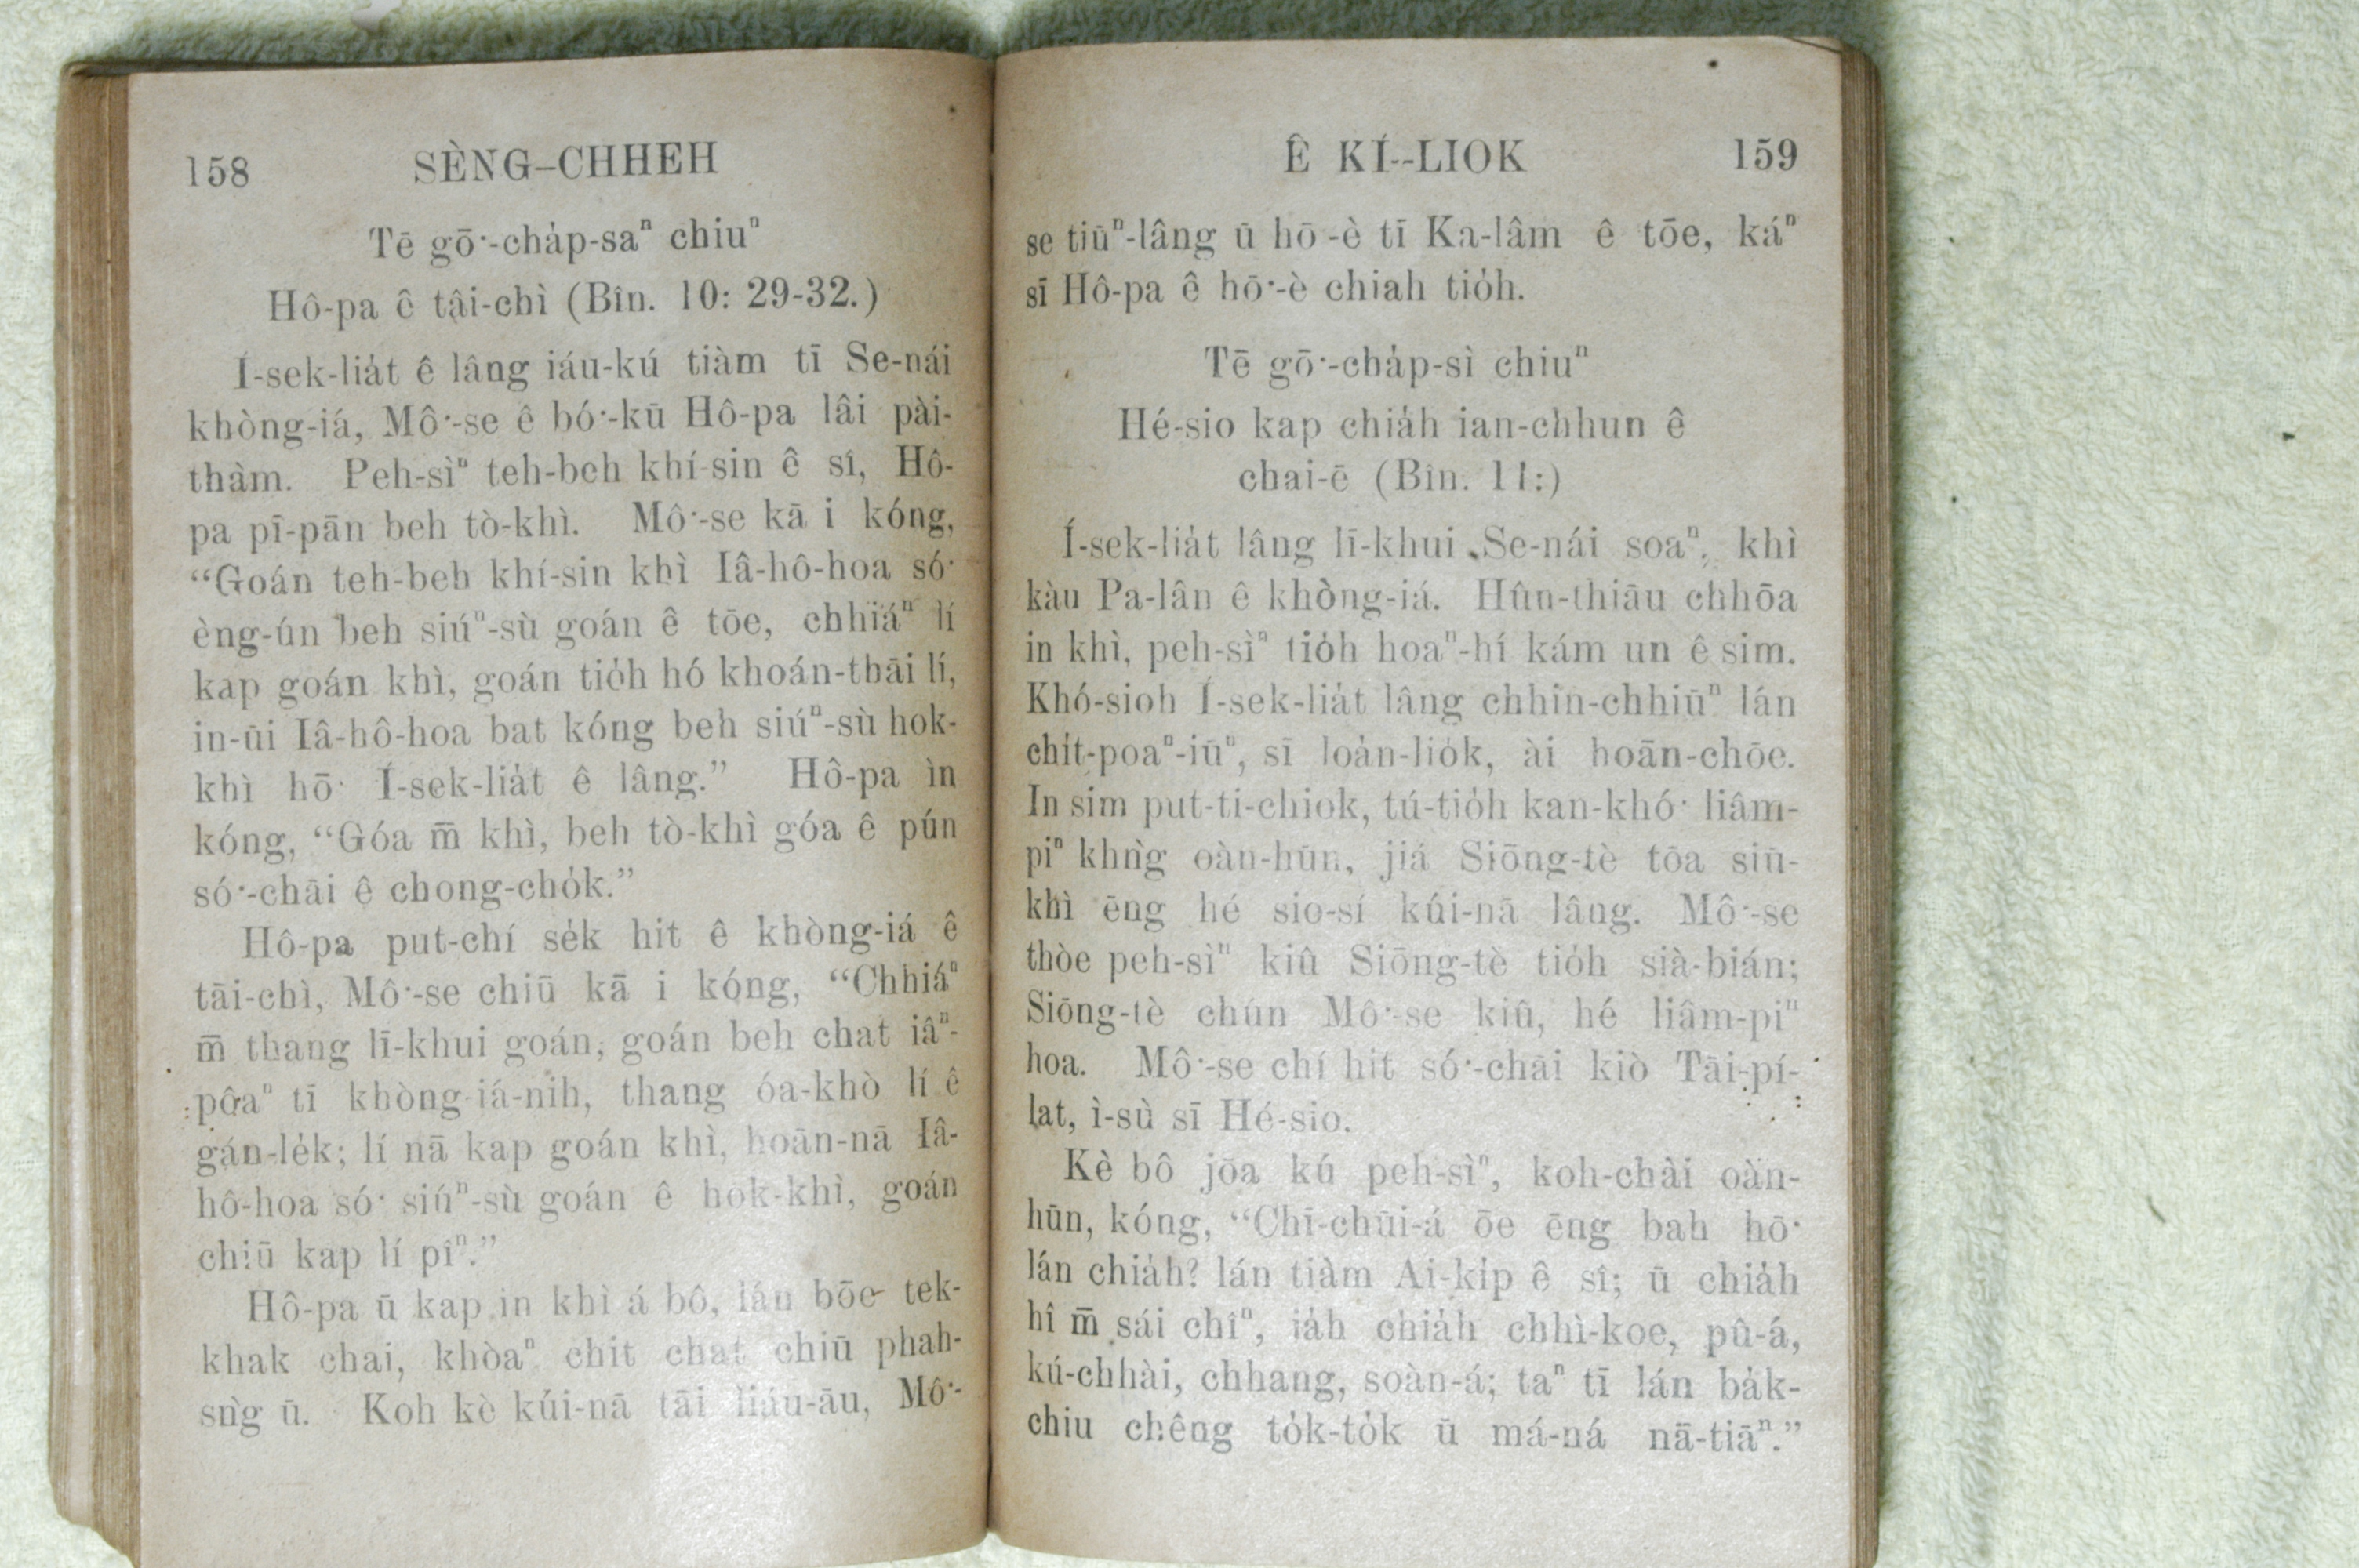 158 SÈNG-CHHEH
Tē gō͘-cha̍p-saⁿ chiuⁿ
Hô-pa ê tāi-chì (Bîn. 10: 29-32.)
Í-sek-lia̍t ê lâng iáu-kú tiàm tī Se-nái
khòng-iá, Mô͘-se ê bó͘-kū Hô-pa lâi pài-
thàm. Peh-sìⁿ teh-beh khí-sin ê sî, Hô-
pa pī-pān beh tò-khì. Mô͘-se kā i kóng,
“Goán teh-beh khí-sin khì Iâ-hô-hoa só͘
èng-ún beh siúⁿ-sù goán ê tōe, chhiáⁿ lí
kap goán khì, goán tio̍h hó khoán-thāi lí,
in-ūi Iâ-hô-hoa bat kóng beh siúⁿ-sù hok-
khì hō͘ Í-sek-lia̍t ê lâng.” Hô-pa ìn
kóng, “Góa m̄ khì, beh tò-khì góa ê pún
só͘-chāi ê chong-cho̍k.”
Hô-pa put-chí se̍k hit ê khòng-iá ê
tāi-chì, Mô͘-se chiū kā i kóng, “Chhiáⁿ
m̄ thang lī-khui goán, goán beh chat iâⁿ-
pôaⁿ tī khòng-iá-nih, thang óa-khò lí ê
gán-le̍k; lí nā kap goán khì, hoān-nā Iâ-
hô-hoa só͘ siúⁿ-sù goán ê hok-khì, goán
chiū kap lí pîⁿ.”
Hô-pa ū kap in khì á bô, lán bōe tek-
khak chai, khòaⁿ chit chat chiū phah-
sǹg ū. Koh kè kúi-nā tāi liáu-āu, Mô͘-
Ê KÍ--LIOK 159
se tiūⁿ-lâng ū hō-è tī Ka-lâm ê tōe, káⁿ
sī Hô-pa ê hō͘-è chiah tio̍h.
Tē gō͘-cha̍p-sì chiuⁿ
Hé-sio kap chia̍h ian-chhun ê
chai-ē (Bîn. 11:)
Í-sek-lia̍t lâng lī-khui Se-nái soaⁿ, khì
kàu Pa-lân ê khòng-iá. Hûn-thiāu chhōa
in khì, peh-sìⁿ tio̍h hoaⁿ-hí kám un ê sim.
Khó-sioh Í-sek-lia̍t lâng chhin-chhiūⁿ lán
chi̍t-poaⁿ-iūⁿ, sī loa̍n-lio̍k, ài hoān-chōe.
In sim put-ti-chiok, tú-tio̍h kan-khó͘ liâm-
piⁿ khǹg oàn-hūn, jiá Siōng-tè tōa siū-
khì ēng hé sio-sí kúi-nā lâng. Mô͘-se
thòe peh-sìⁿ kiû Siōng-tè tio̍h sià-bián;
Siōng-tè chún Mô͘-se kiû, hé liâm-piⁿ
hoa. Mô͘-se chí hit só͘-chāi kiò Tāi-pí-
lat, ì-sù sī Hé-sio.
Kè bô jōa kú peh-sìⁿ, koh-chài oàn-
hūn, kóng, “Chī-chūi-á ōe ēng bah hō͘
lán chia̍h? lán tiàm Ai-ki̍p ê sî; ū chia̍h
hî m̄ sái chîⁿ, ia̍h chia̍h chhì-koe, pû-á,
kú-chhài, chhang, soàn-á; taⁿ tī lán ba̍k-
chiu chêng to̍k-to̍k ū má-ná nā-tiāⁿ.”